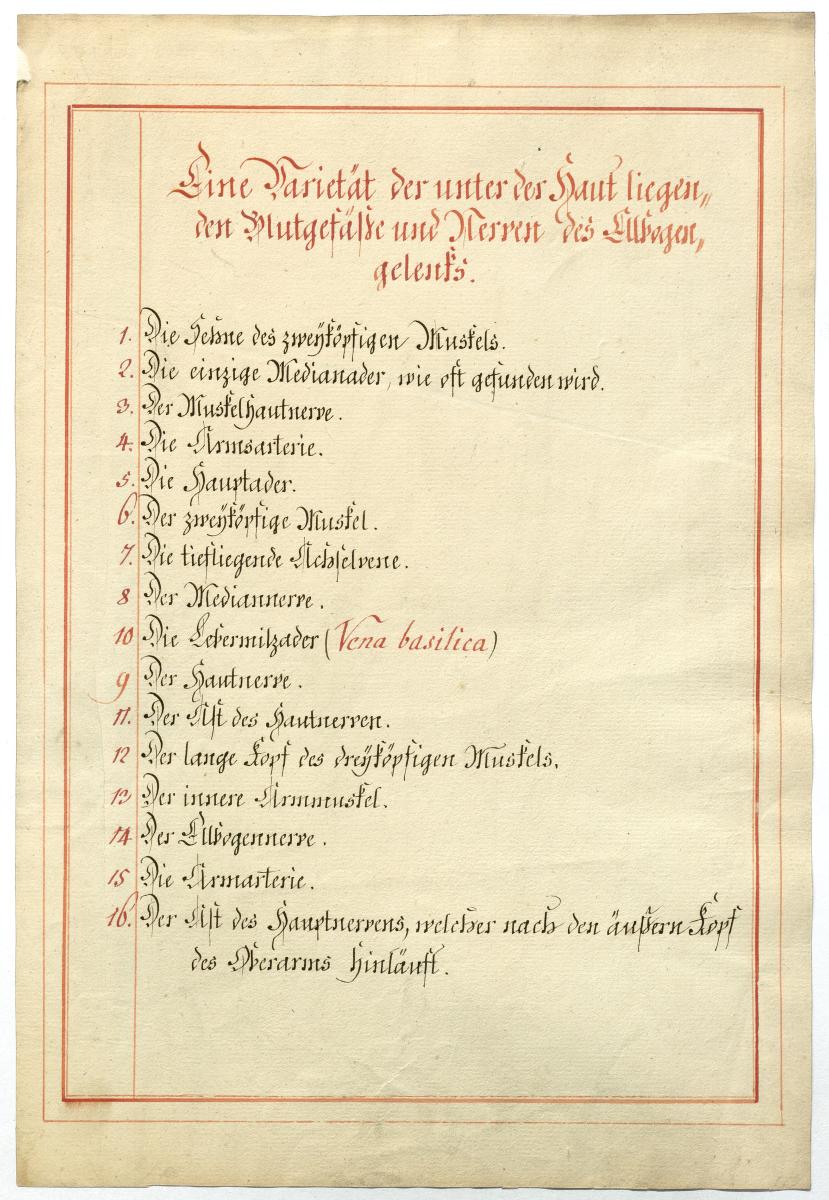 Eine Varietät der unter der Haut liegen„
den Blutgefäße und Nerven des Ellbogen„
gelenks.
1. Die Sehne des zweyköpfigen Muskels.
2. Die einzige Medianader, wie oft gefunden wird.
3. Der Muskelhautnerve.
4. Die Armsarterie.
5. Die Hauptader.
6. Der zweyköpfige Muskel.
7. Die tiefliegende Achselvene.
8 Der Mediannerve.
10 Die Lebermilzader (Vena basilica)
9 Der Hautnerve.
11. Der Ast des Hautnerven.
12 Der lange Kopf des dreyköpfigen Muskels.
13 Der innere Armmuskel.
14 Der Ellbogennerve.
15 Die Armarterie.
16. Der Ast des Hauptnervens, welcher nach den äußern Kopf
des Oberarms hinläuft.